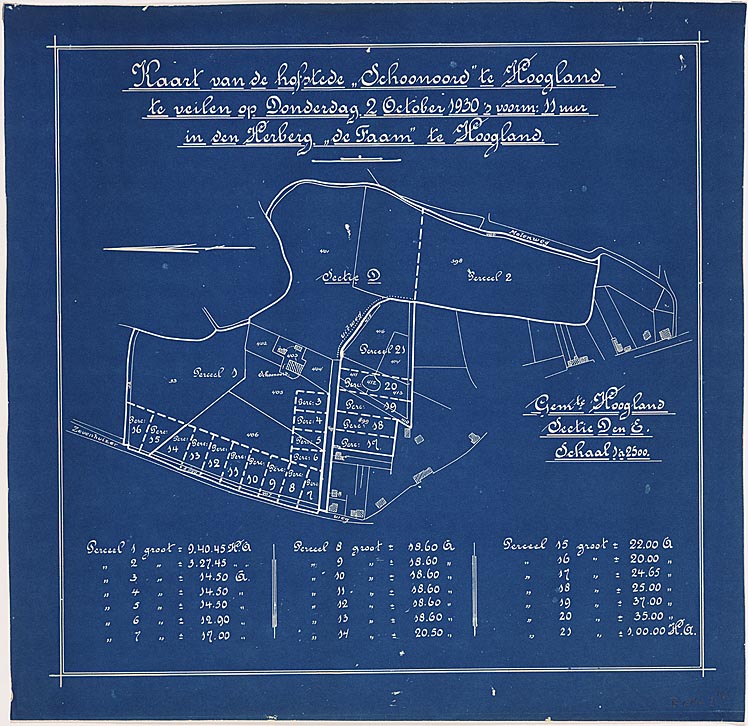 Kaart van de hofstede „Schoonoord" te Hoogland
te veilen op Donderdag 2 October 1930 's voorm: 11 uur
in den Herberg „de Faam" te Hoogland.
Molenweg
401
398
Sectie D
Perceel 2
uitweg
416
Perceel 21
402
403
404
Schoonoord
33
Perceel 1
405
406
Perc: 3
Perc: 4
Perc: 5
Perc: 6
Perc: 20
412
413
19
Perc: 18
Perc: 17
Perc: 16
Perc: 15
Perc: 14
Perc: 13
Perc: 12
Perc: 11
Perc: 10
Perc: 9
Perc: 8
Perc: 7
Zevenhuizer
weg
Gemte Hoogland
Sectie D en E.
Schaal 1 à 2500.
Perceel 1 groot ± 9.40.45 H.A.
„ 2 „ ± 3.27.45 „ „
„ 3 „ ± 14.50 A.
„ 4 „ ± 14.50 „
„ 5 „ ± 14.50 „
„ 6 „ ± 12.90 „
„ 7 „ ± 17.00 „
Perceel 8 groot ± 18.60 A.
„ 9 „ ± 18.60 „
„ 10 „ ± 18.60 „
„ 11 „ ± 18.60 „
„ 12 „ ± 18.60 „
„ 13 „ ± 18.60 „
„ 14 „ ± 20.50 „
Perceel 15 groot ± 22.00 A
„ 16 „ ± 20.00 „
„ 17 „ ± 24.65 „
„ 18 „ ± 25.00 „
„ 19 „ ± 37.00 „
„ 20 „ ± 35.00 „
„ 21 „ ± 1.00.00 H.A.